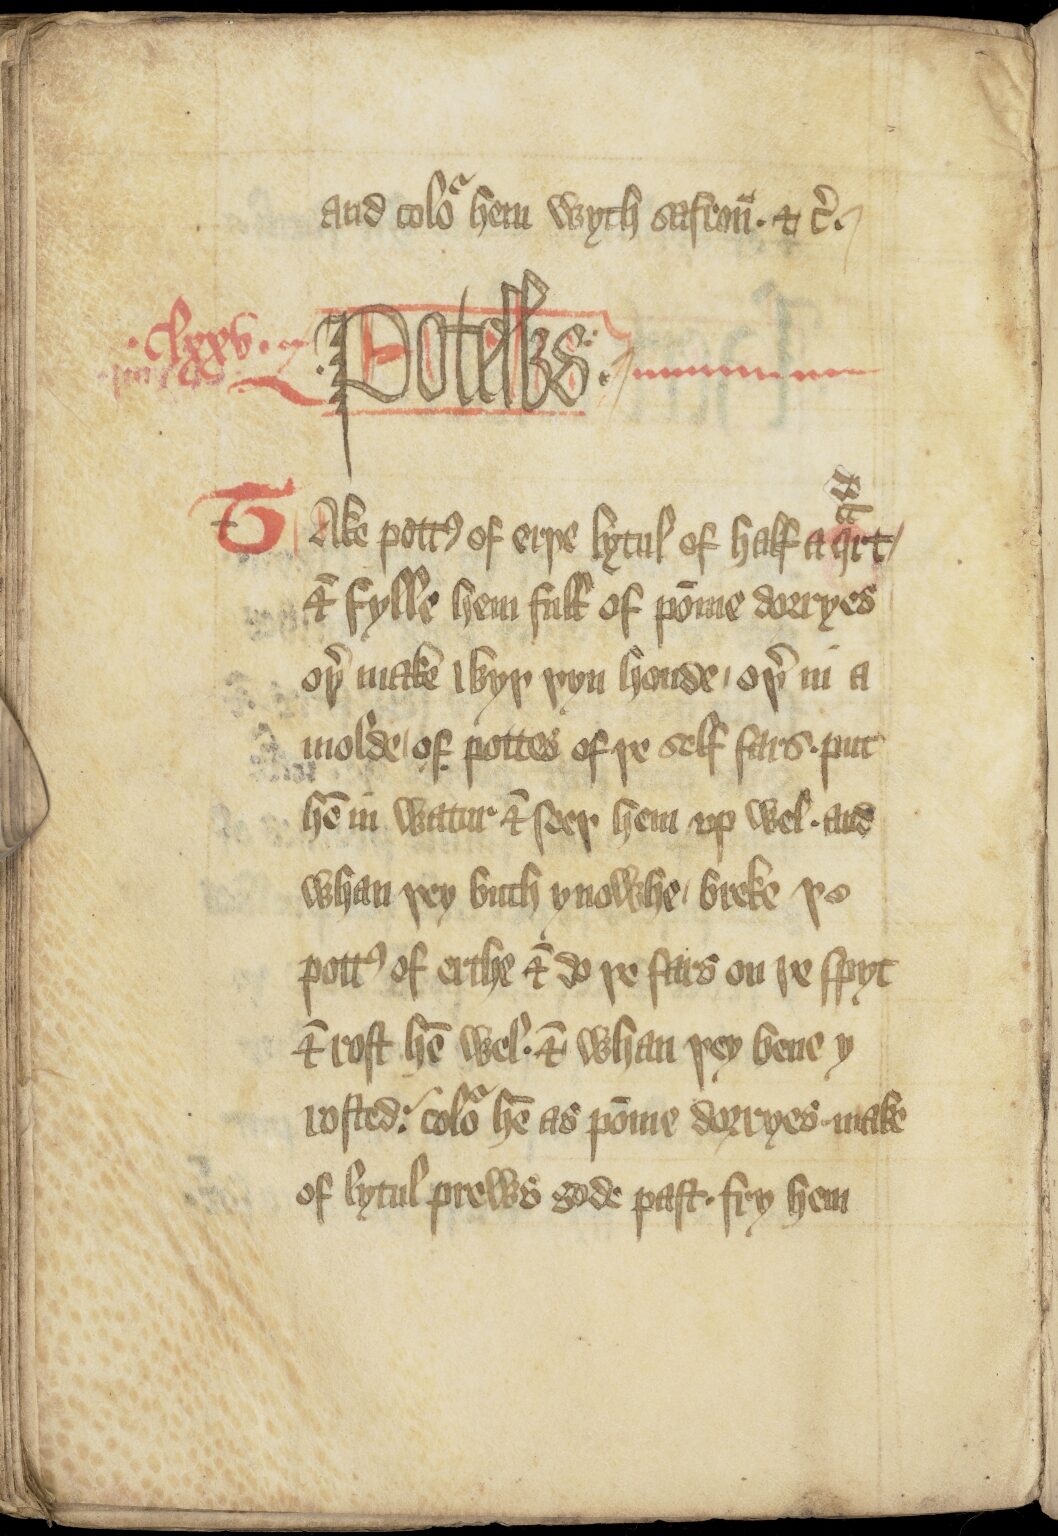 and coloᵃ hem wyth safron̄. ⁊ c̄.
.clxxv. Potellys.
TAke pottꝰ of erþe lytul of half a qᵃrt /
⁊ fylle hem full of pōme dorryes
oþ̉ make wyþ þyn honde / oþ̉ in a
molde / of pottes of þe self fars. put
hē in watur ⁊ seeþ hem up wel. and
whan þey buth ynowhe / breke þo
pottꝰ of erthe ⁊ do þe fars on þe spyt
⁊ rost hē wel. ⁊ whan þey bene y
rosted: coloᵃ hē as pōme dorryes. make
of lytul prews gode past. fry hem